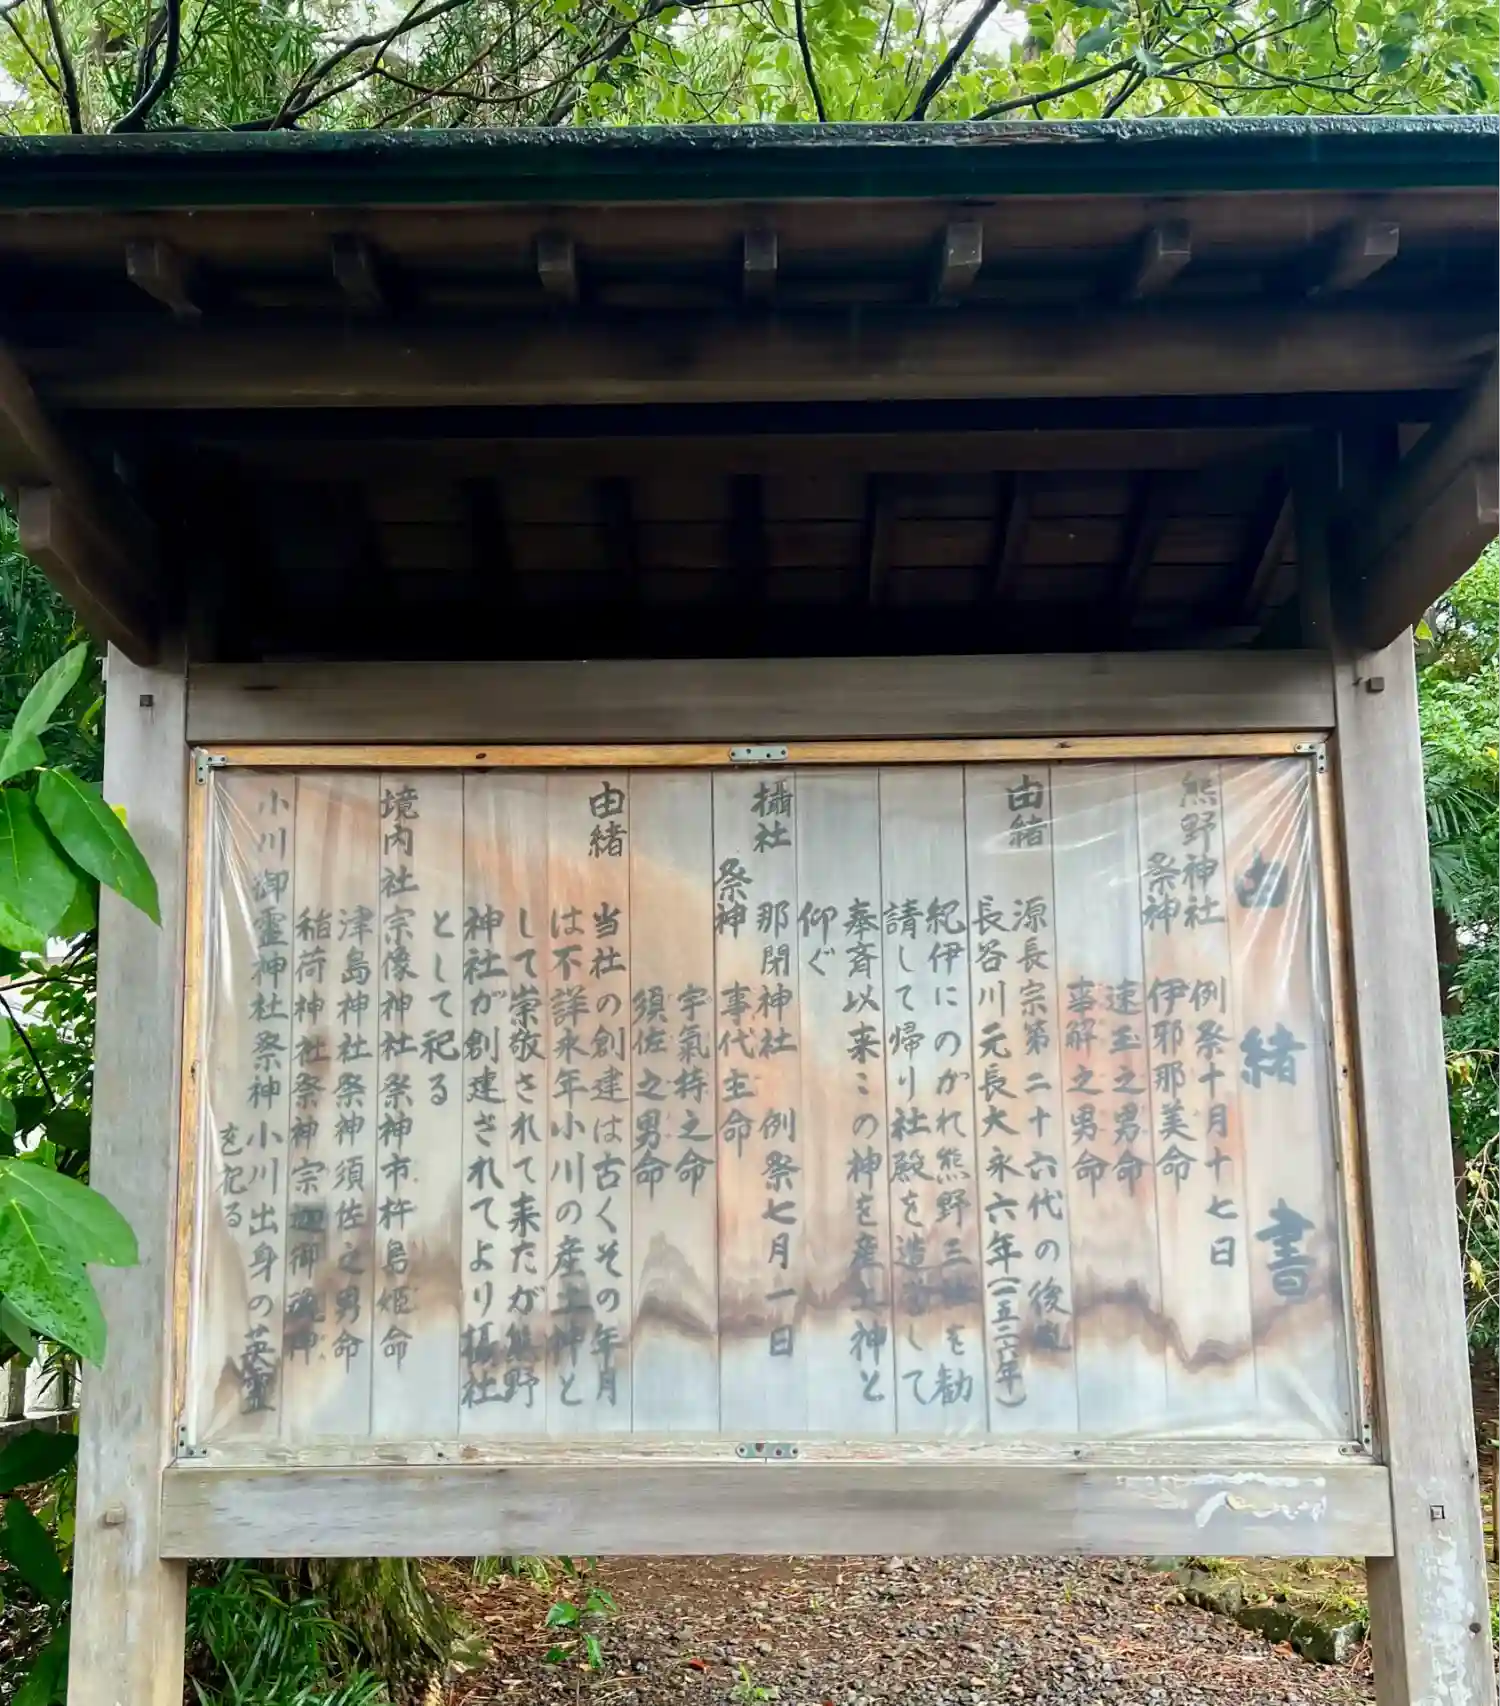 由緒書
熊野神社 例祭十月十七日
祭神 伊邪那美命
速玉之男命
事解之男命
由緒
源長宗第二十六代の後
長谷川元長大永六年(一五二六年)
紀伊にのがれ熊野三 を勧
請して帰り社殿を造 して
奉斉以来この神を産土神と
仰ぐ
攝社 那閉神社 例祭七月一日
祭神 事代主命
宇氣持之命
須佐之男命
由緒
当社の創建は古くその年月
は不詳永年小川の産土神と
して崇敬されて来たが熊野
神社が創建されてより攝社
として祀る
境内社宗像神社祭神市杵島姫命
津島神社祭神須佐之男命
稲荷神社祭神宗迦御魂神
小川御霊神社祭神小川出身の英霊
を祀る